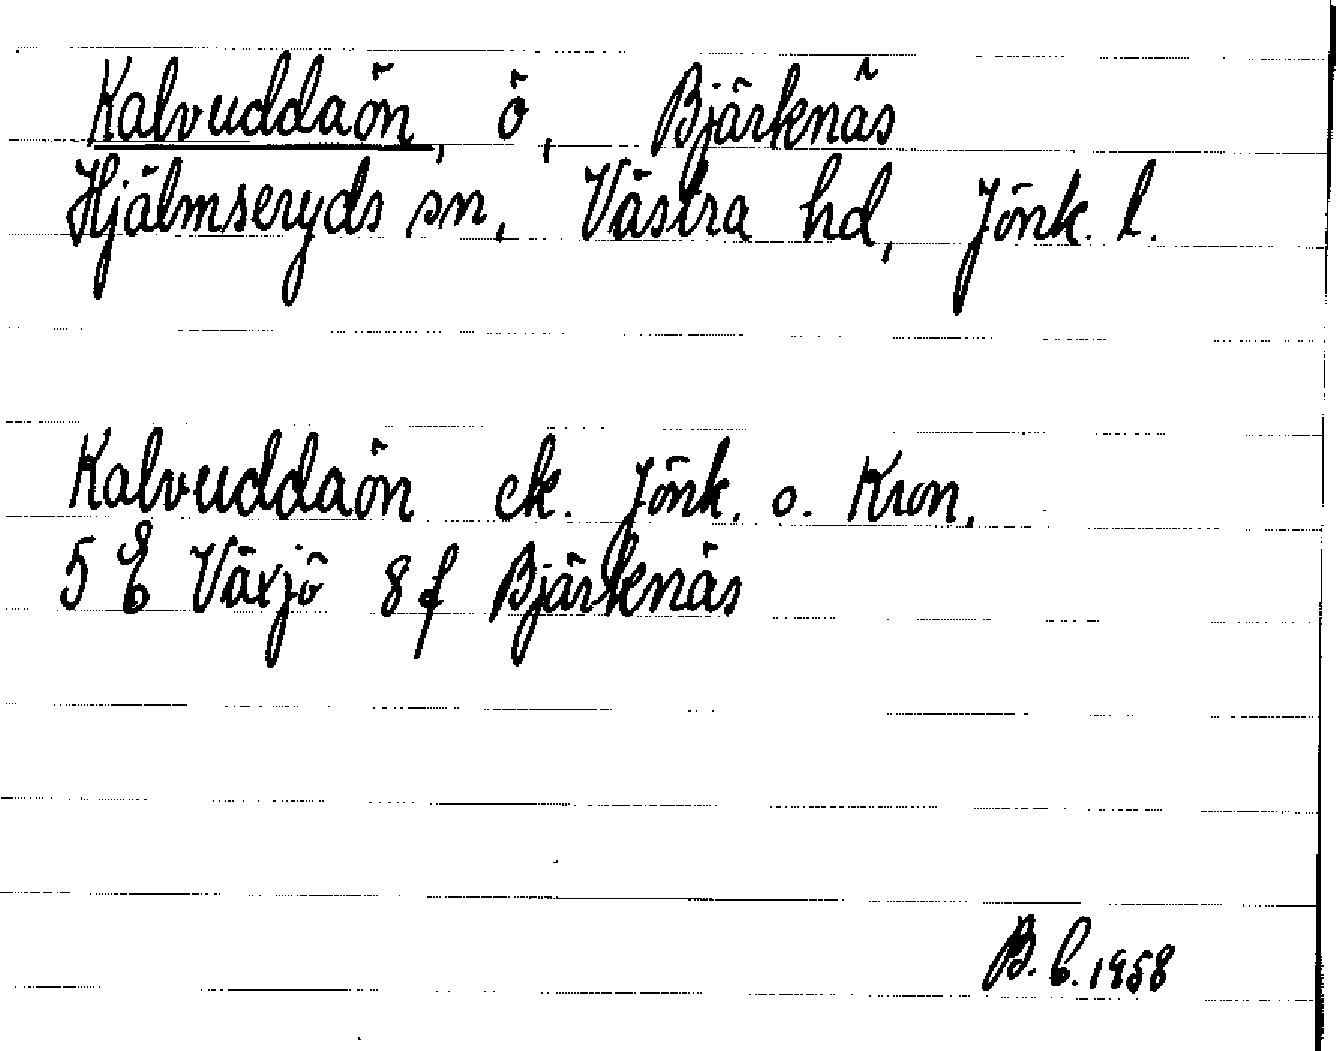 Kalvuddaön, ö, Bjärkenäs
Hjälmseryds sn, Västra hd, Jönk. l.
Kalvuddaön ek. Jönk. o. Kron.
5 E Växjö 8 f Bjärkenäs
B. b. 1958